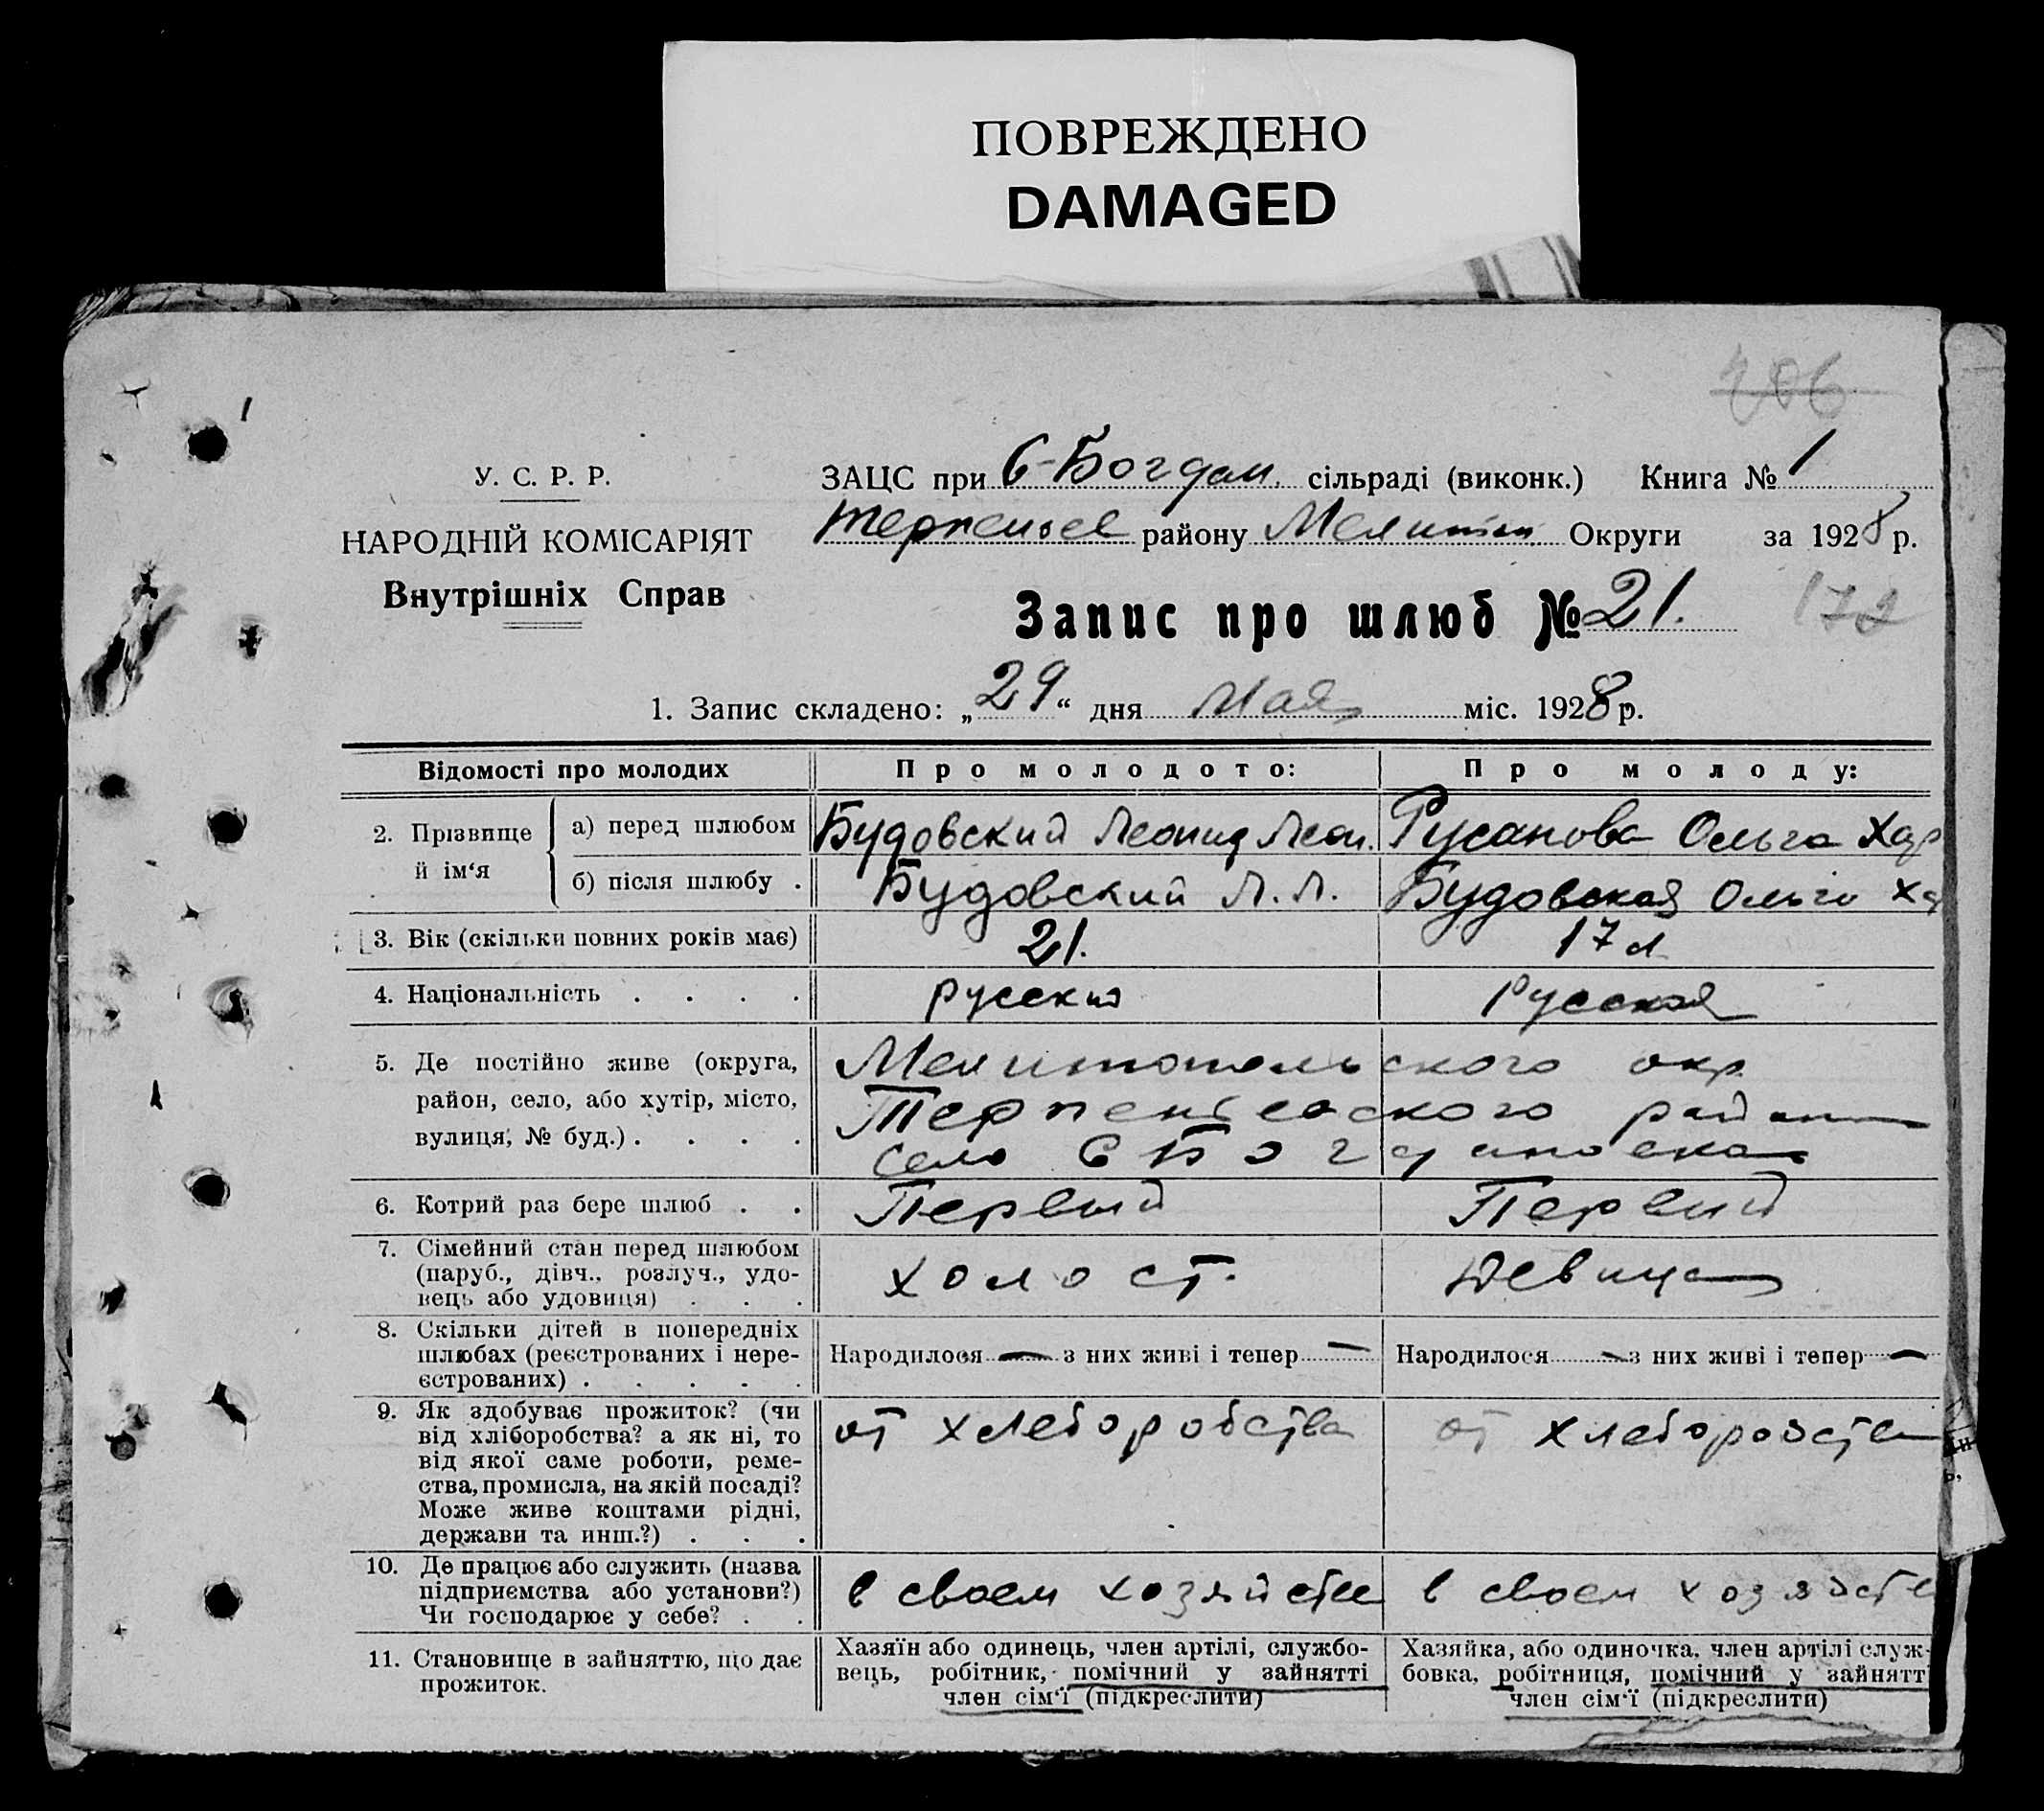 ПОВРЕЖДЕНО
DAMAGED
206
1
У. С. Р. Р.
НАРОДНІЙ КОМІСАРІЯТ
Внутрішніх Справ
ЗАЦС при С-Богдан. сільраді (виконк.) Книга № 1
Терпеньев району Мелитоп. Округи за 1928 р.
Запис про шлюб № 21.
172
1. Запис складено: „29“ дня Мая міс. 1928 р.
Відомості про молодих Про молодого: Про молоду:
2. Прізвище й ім‘я
а) перед шлюбом Будовский Леонид Леон. Русанова Ольга Хар
б) після шлюбу . Будовский Л. Л. Будовская Ольга Ха
3. Вік (скільки повних років має) 21. 17 л
4. Національність . . . . русский Русская
5. Де постійно живе (округа,
район, село, або хутір, місто,
вулиця, № буд.) . . . .
Мелитопольского окр.
Терпеньевского район
село С Богдановка
6. Котрий раз бере шлюб . . Первый Первый
7. Сімейний стан перед шлюбом
(паруб., дівч., розлуч., удо-
вець або удовиця) . . .
холост. Девица
8. Скільки дітей в попередніх
шлюбах (реєстрованих і нере-
єстрованих) . . . . .
Народилося — з них живі і тепер — Народилося — з них живі і тепер —
9. Як здобуває прожиток? (чи
від хліборобства? а як ні, то
від якої саме роботи, реме-
ства, промисла, на якій посаді?
Може живе коштами рідні,
держави та инш.?) . . .
от хлеборобства от хлеборобства
10. Де працює або служить (назва
підприємства або установи?)
Чи господарює у себе? . .
в своем хозяйстве в своем хозяйстве
11. Становище в зайняттю, що дає
прожиток.
Хазяїн або одинець, член артілі, службо-
вець, робітник, помічний у зайнятті
член сім‘ї (підкреслити)
Хазяйка, або одиночка, член артілі служ-
бовка, робітниця, помічний у зайнятт
член сім‘ї (підкреслити)